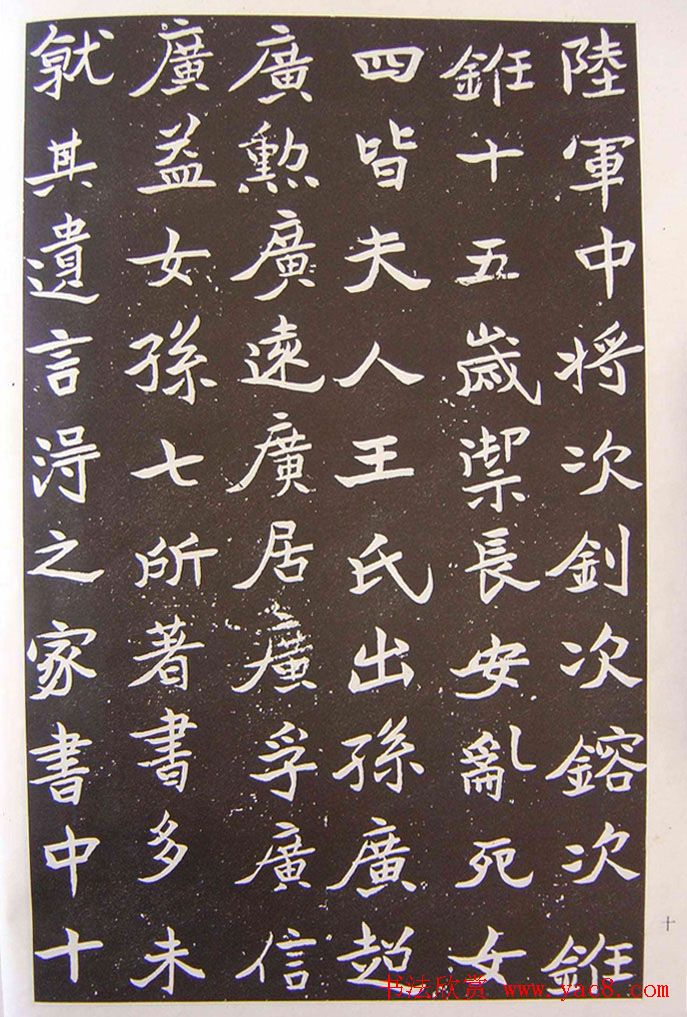 陸軍中将次釗次鎔次
十五歲禦長安亂死女
四皆夫人王氏出孫廣超
廣勲廣遠廣居廣孚廣信
廣益女孫七所著書多未
就其遺言淂之家書中十
十
书法欣赏 www.yac8.com